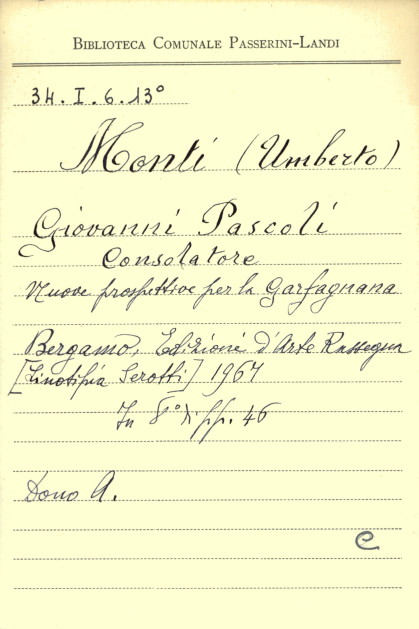 BIBLIOTECA COMUNALE PASSERINI-LANDI
34. I. 6. 13°
Monti (Umberto)
Giovanni Pascoli
Consolatore
Nuove prospettive per la Garfagnana
Bergamo, Edizioni d'Arte Rassegna
[Linotipia Serotti] 1967
In 8° di pp. 46
Dono A.
C